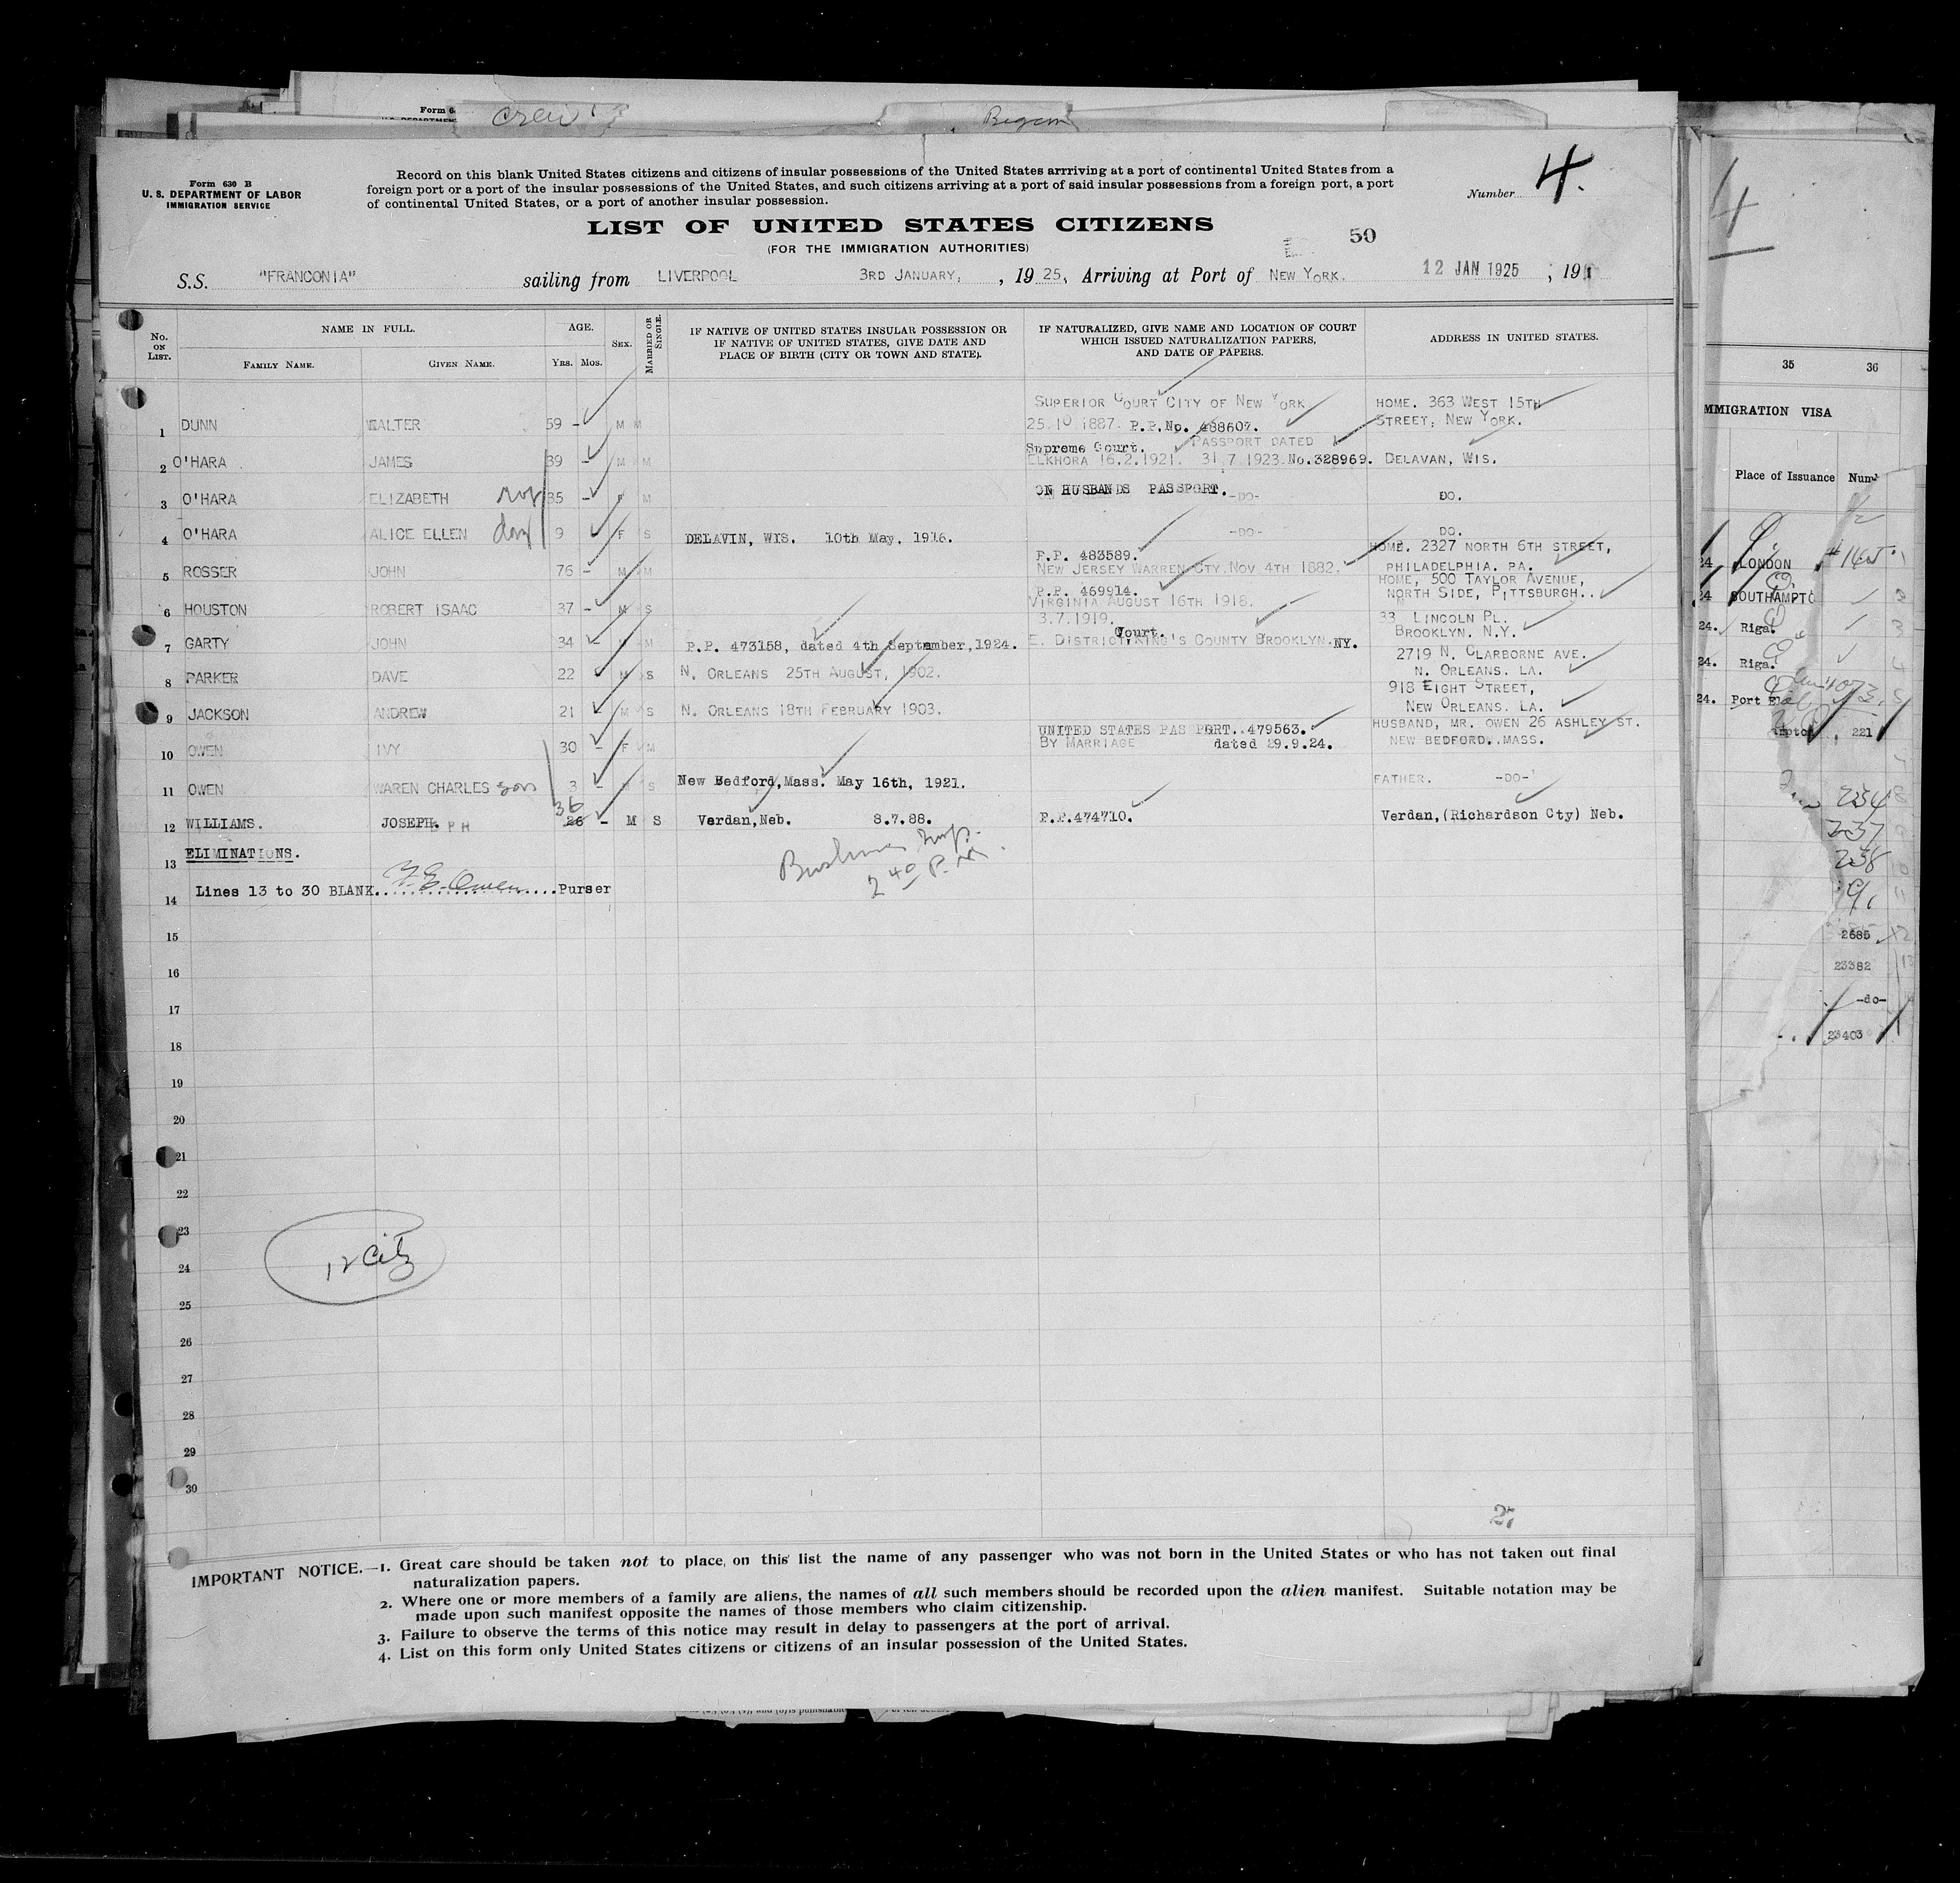 Crew
Begin
Form 630 B
U. S. DEPARTMENT OF LABOR
IMMIGRATION SERVICE
Record on this blank United States citizens and citizens of insular possessions of the United States arriving at a port of continental United States from a
foreign port or a port of the insular possessions of the United States, and such citizens arriving at a port of said insular possessions from a foreign port, a port
of continental United States, or a port of another insular possession.
Number 4.
LIST OF UNITED STATES CITIZENS
(FOR THE IMMIGRATION AUTHORITIES)
50
S.S. "FRANCONIA" sailing from LIVERPOOL 3RD JANUARY, , 1925, Arriving at Port of NEW YORK. 12 JAN 1925 , 191
No. ON LIST. NAME IN FULL. FAMILY NAME. GIVEN NAME. AGE. YRS. MOS. SEX. MARRIED OR SINGLE.
IF NATIVE OF UNITED STATES INSULAR POSSESSION OR
IF NATIVE OF UNITED STATES, GIVE DATE AND
PLACE OF BIRTH (CITY OR TOWN AND STATE).
IF NATURALIZED, GIVE NAME AND LOCATION OF COURT
WHICH ISSUED NATURALIZATION PAPERS,
AND DATE OF PAPERS.
ADDRESS IN UNITED STATES.
SUPERIOR COURT CITY OF NEW YORK HOME. 363 WEST 15TH
1 DUNN WALTER 59 - M M 25.10 1887. P.P.No. 488607. STREET, NEW YORK.
Supreme Court. PASSPORT DATED
2 O'HARA JAMES 39 - M M ELKHORA 16.2.1921. 31.7 1923 No.328969. DELAVAN, WIS.
3 O'HARA ELIZABETH 35 - F M ON HUSBANDS PASSPORT. -DO- DO.
4 O'HARA ALICE ELLEN 9 F S DELAVIN, WIS. 10th May, 1916. -DO- DO.
P.P. 483589. HOME. 2327 NORTH 6TH STREET,
5 ROSSER JOHN 76 - M M NEW JERSEY WARREN CTY.NOV 4TH 1882. PHILADELPHIA. PA.
P.P. 469914. HOME, 500 TAYLOR AVENUE,
6 HOUSTON ROBERT ISAAC 37 - M S VIRGINIA AUGUST 16TH 1918. NORTH SIDE, PITTSBURGH..
3.7.1919. 33 LINCOLN PL.
7 GARTY JOHN 34 - M M P.P. 473158, dated 4th September,1924. E. DISTRICT, Court. KING'S COUNTY BROOKLYN.NY. BROOKLYN. N.Y.
2719 N. CLARBORNE AVE.
8 PARKER DAVE 22 M S N. ORLEANS 25TH AUGUST, 1902. N. ORLEANS. LA.
918 EIGHT STREET,
9 JACKSON ANDREW 21 - M S N. ORLEANS 18TH FEBRUARY 1903. NEW ORLEANS. LA.
UNITED STATES PASSPORT. 479563. HUSBAND, MR. OWEN 26 ASHLEY ST.
10 OWEN IVY 30 - F M BY MARRIAGE dated 29.9.24. NEW BEDFORD..MASS.
11 OWEN WAREN CHARLES son 3 - M S New Bedford,Mass. May 16th, 1921. FATHER. -DO-
36
12 WILLIAMS. JOSEPH. 26 - M S Verdan,Neb. 8.7.88. P.P.474710. Verdan,(Richardson Cty) Neb.
13 ELIMINATIONS.
2 40 P.M.
14 Lines 13 to 30 BLANK. Owen Purser
15
16
17
18
19
20
21
22
23
12 Citz
24
25
26
27
28
29
30
IMPORTANT NOTICE.—1. Great care should be taken not to place on this list the name of any passenger who was not born in the United States or who has not taken out final
naturalization papers.
2. Where one or more members of a family are aliens, the names of all such members should be recorded upon the alien manifest. Suitable notation may be
made upon such manifest opposite the names of those members who claim citizenship.
3. Failure to observe the terms of this notice may result in delay to passengers at the port of arrival.
4. List on this form only United States citizens or citizens of an insular possession of the United States.
4
35 36
MMIGRATION VISA
Place of Issuance
24 LONDON
24 SOUTHAMPTO
24. Riga.
24. Riga.
24. Port
221
234
237
238
2685
23382
-do-
23403